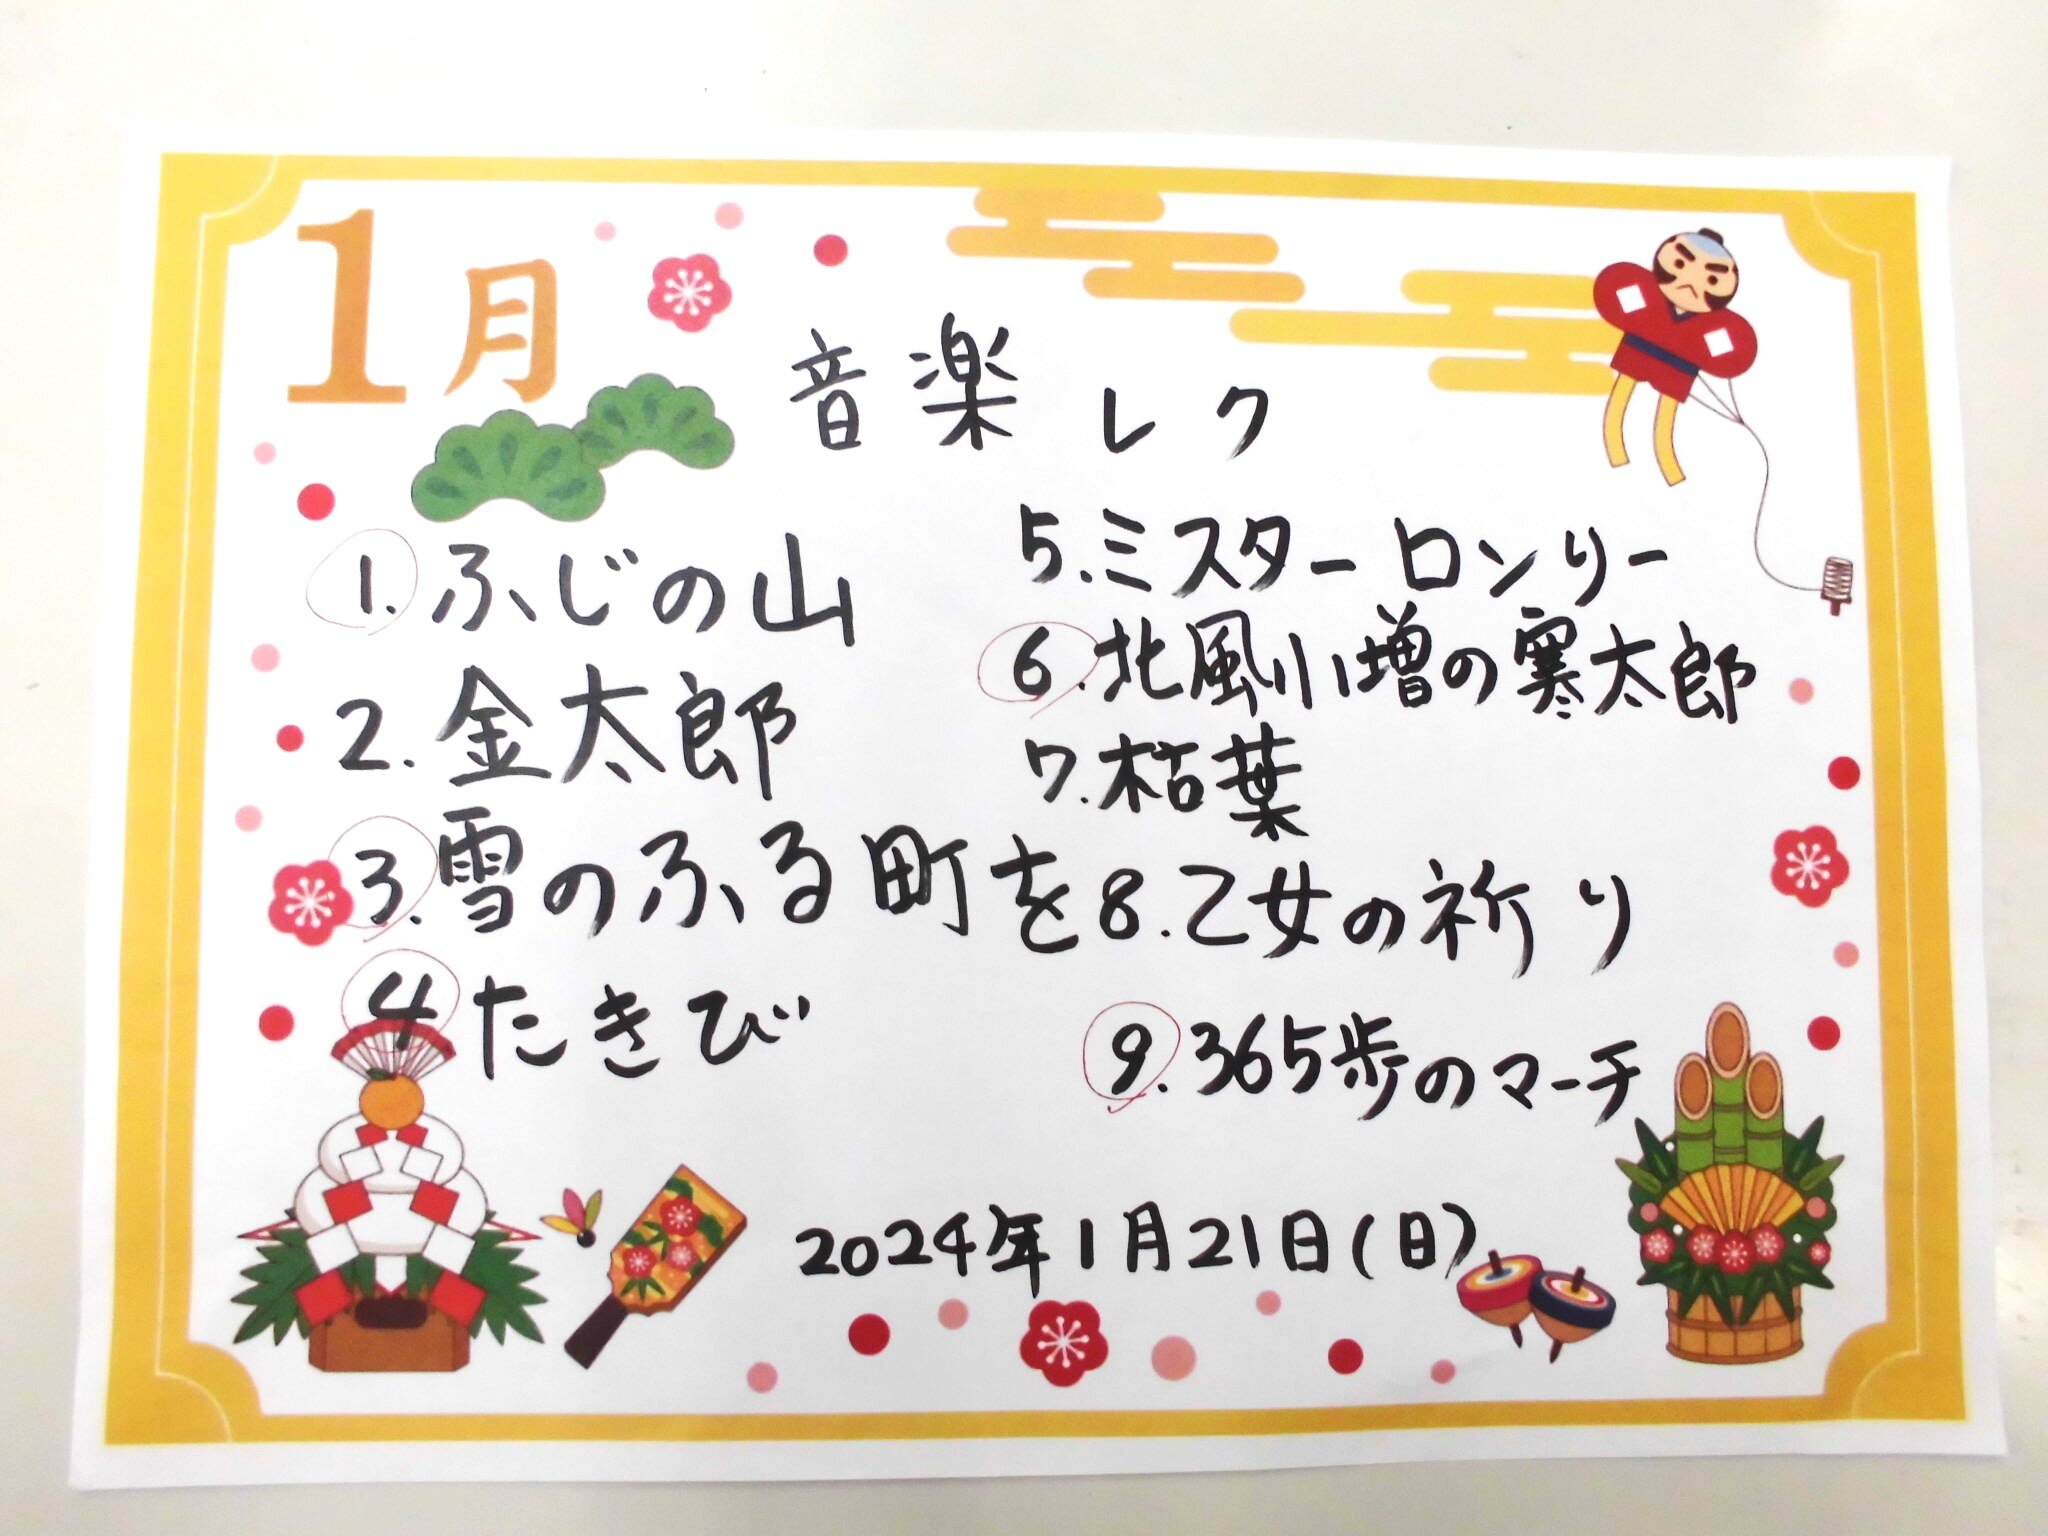 1月
音楽レク
1. ふじの山
2. 金太郎
3. 雪のふる町を
4 たきび
5. ミスターロンリー
6. 北風小増の寒太郎
7. 枯葉
8. 乙女の祈り
9. 365歩のマーチ
2024年1月21日(日)